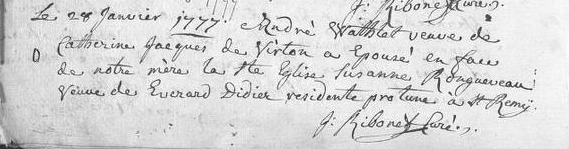 J: Ribonet Curé.
Le 28 Janvier 1777 André Wathlet veuve de
Catherine Jacques de Virton a Epousé en face
de notre mère la Ste Eglise Susanne Rongueveau
Veuve de Everard Didier residente protunc à St Remy.
J: Ribonet Curé.